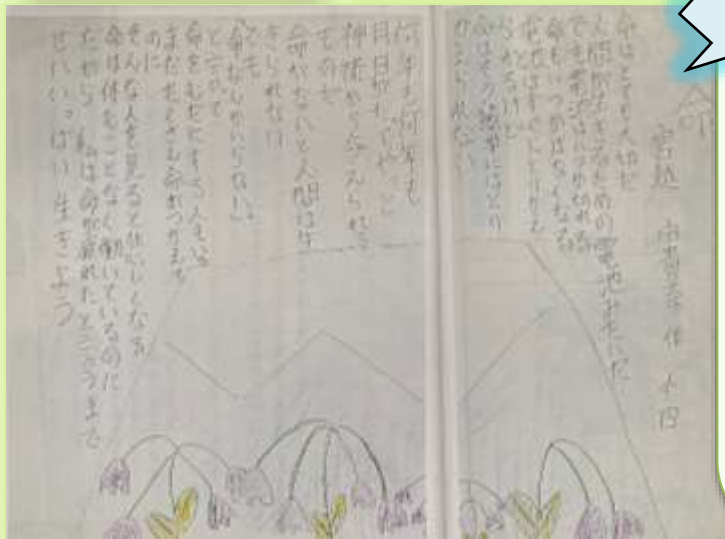 命
宮越 由貴奈作 小四
命はとても大切だ
人間が生きるための電池みたいだ
でも電池はいつか切れる
命もいつかはなくなる
電池はすぐにとりかえ
られるけど
命はそう簡単にはとり
かえられない
何年も何年も
月日がたってやっと
神様から与えられる
ものだ
命がないと人間は生
きられない
でも
「命なんかいらない。」
と言って
命をむだにする人もいる
まだたくさん命がつかえる
のに
そんな人を見ると悲しくなる
命は休むことなく働いているのに
だから 私は命が疲れたと言うまで
せいいっぱい生きよう